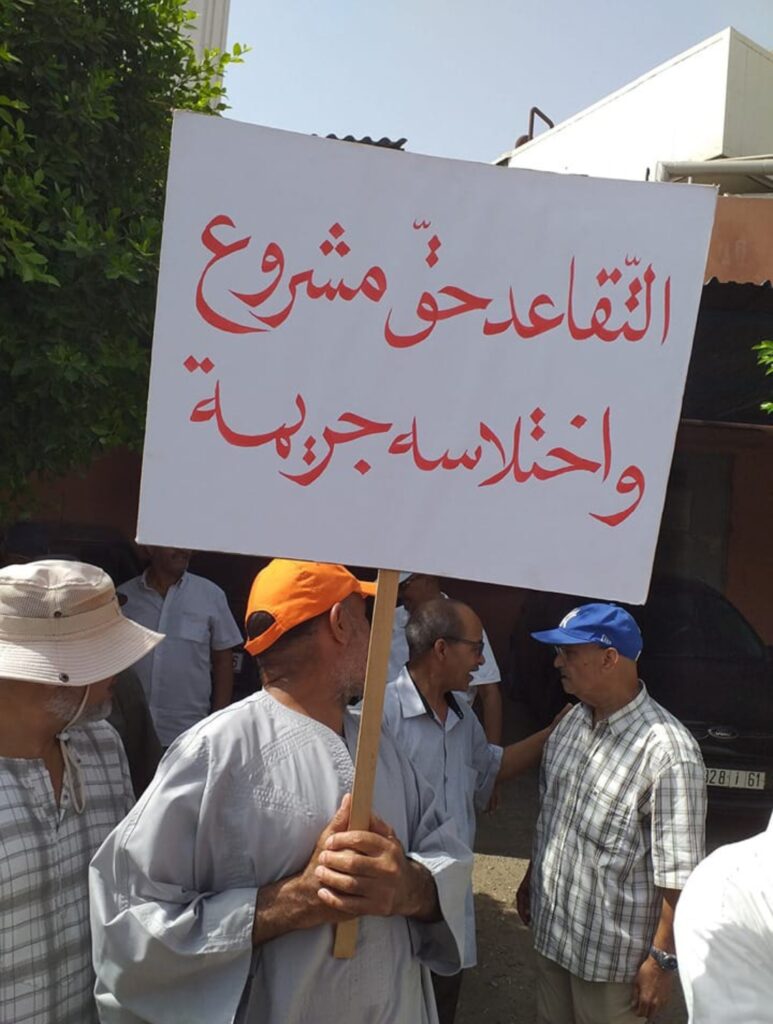 التّقاعد حقّ مشروع
واختلاسه جريمة
Ford
328 أ 61